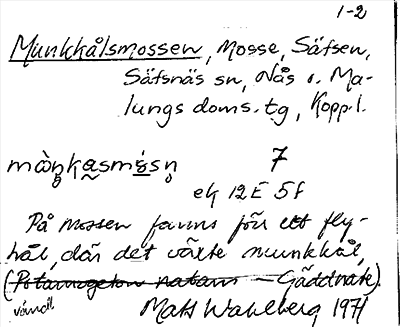 1-2
Munkkålsmossen, Mosse, Säfsen,
Säfsnäs sn, Nås o. Ma-
lungs doms. tg, Kopp. l.
7
ek 12 E 5 f
På mossen fanns förr ett fly-
hål, där det växte munkkål,
(Potamogeton natans — Gäddnate).
Mats Wahlberg 1971